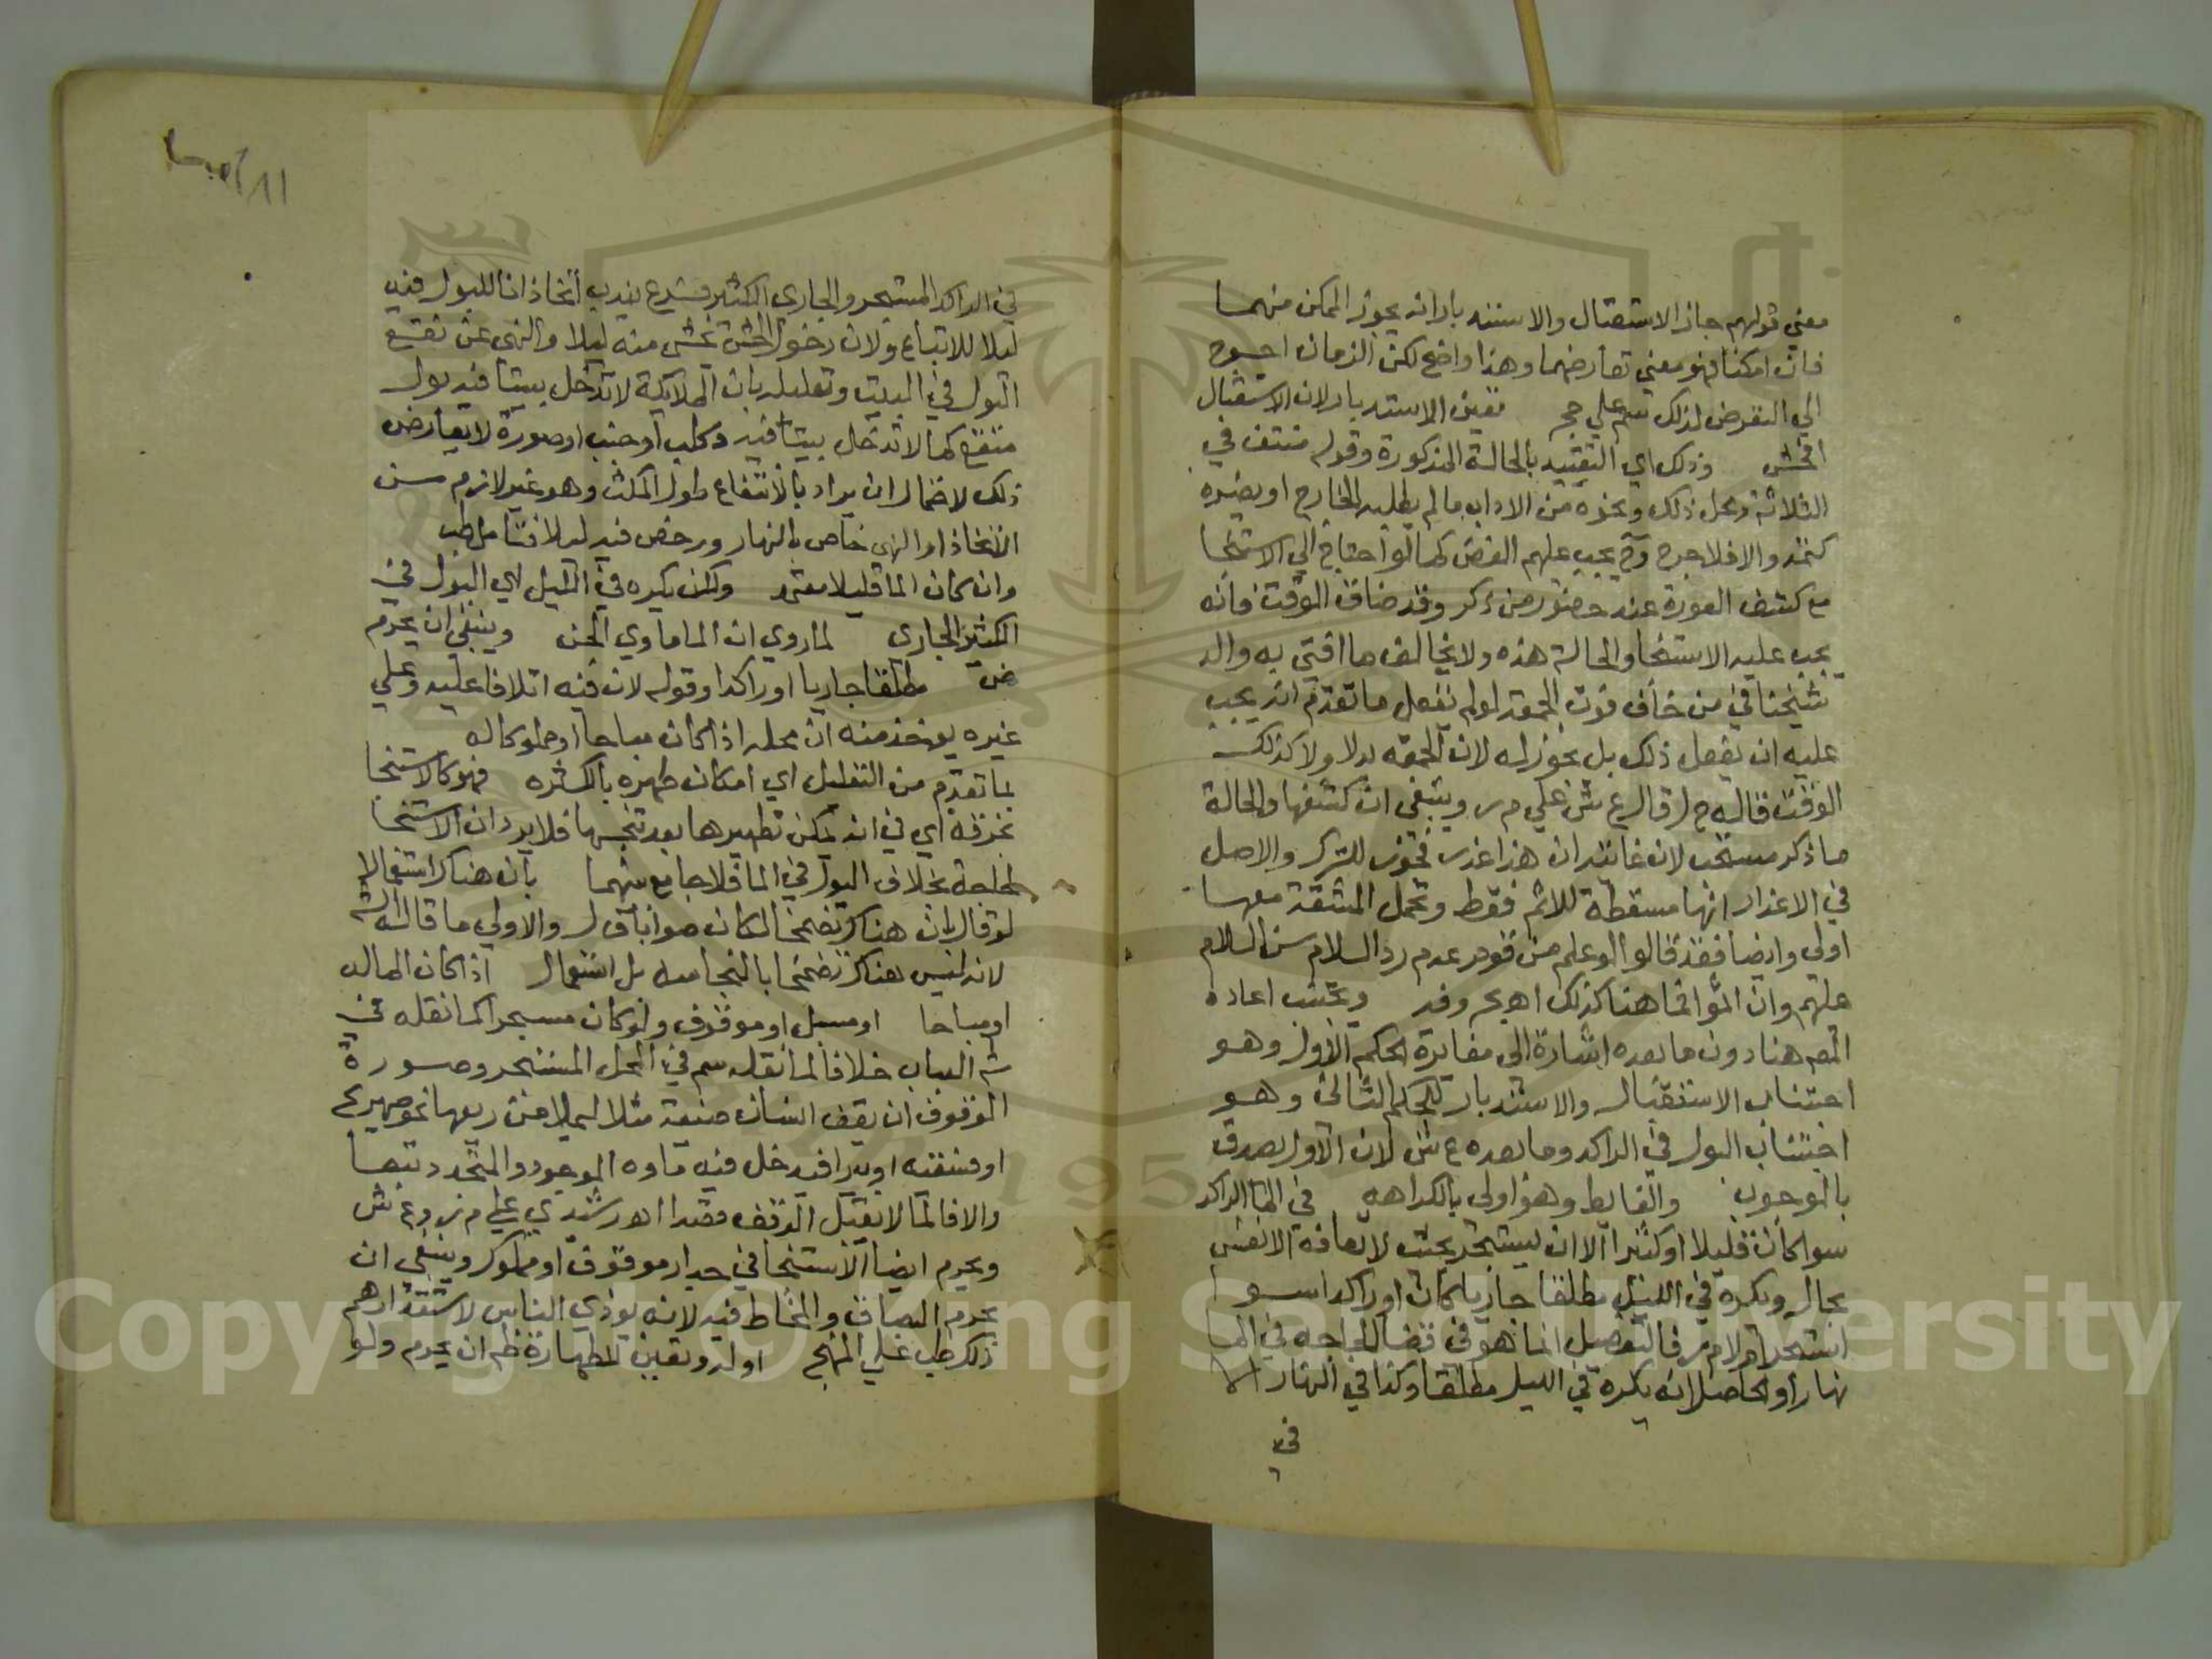 معني قولهم جاز الاستقبال والاستدبار انه يجوز الممكن منهما
فان امكنا فهو معني تعارضهما وهذا واضح لكن الزمان احوج
الي التعرض لذلك سم علي حج تعين الاستدبار لان الاستقبال
افحش وذلك اي التقييد بالحالة المذكورة وقوله منتف في
الثلاثة ومحل ذلك ونحوه من الاداب ما لم يغلبه الخارج او يضره
كتمه والا فلا حرج وح يجب عليهم الغض كما لو احتاج الي الاستنجا
مع كشف العورة عند حضور من ذكر وقد ضاق الوقت فانه
يجب عليه الاستنجا والحالة هذه ولا يخالف ما افتي به والد
شيخنا في من خاف فوت الجمعة لو لم يفعل ما تقدم انه يجب
عليه ان يفعل ذلك بل يجوز له لان للجمعة بدلا ولا كذلك
الوقت قاله ح ل قال ع ش علي م ر وينبغي ان كشفها والحالة
ما ذكر مستحب لان غايته ان هذا عذر فجوز للترك والاصل
في الاعذار انها مسقطة للاثم فقط وتحمل المشقة معها
اولي وايضا فقد قالوا لو علم من قوم عدم رد السلام سن السلام
عليهم وان اثموا فما هنا كذلك اهـ بحروفه ويجتنب اعاده
المص هنا دون ما بعده اشارة الى مغايرة الحكم الاول وهو
اجتناب الاستقبال والاستدبار للحكم الثاني وهو
اجتناب البول في الراكد وما بعده ع ش لان الاول يصدق
بالوجوب والغايط وهو اولي بالكراهه في الما الراكد
سوا كان قليلا او كثيرا الا ان يستبحر بحيث لا تعافه الانفس
بحال ويكره في الليل مطلقا جاريا كان او راكدا سوا
استبحر ام لا م ر فالتفصيل انما هو في قضا الحاجه في الما
نهارا والحاصل انه يكره في الليل مطلقا وكذا في النهار الا
في
في الراكد المستبحر والجاري الكثير فرع يندب اتخاذ انا للبول فيه
ليلا للاتباع ولان دخول الحش يخشى منه ليلا والنهي عن نقع
البول في البيت وتعليله بان الملائكة لا تدخل بيتا فيه بول
منتقع كما لا تدخل بيتا فيه كلب او جنب او صورة لا يعارض
ذلك لاحتمال ان يراد بالانتقاع طول المكث وهو غير لازم من
الاتخاذ او النهي خاص بالنهار ورخص فيه ليلا فتامل طب
وان كان الما قليلا معتمد ولكن يكره في الليل اي البول في
الكثير الجاري لما روي ان الما ماوي الجن وينبغي ان يحرم
مطلقا جاريا او راكدا وقوله لان فيه اتلافا عليه وعلي
غيره يوخذ منه ان محله اذا كان مباحا او مملوكا له
لما تقدم من التعليل اي امكان طهره بالكثره فهو كالاستنجا
بخرقة اي في انه يمكن تطهيرها بعد تنجسها فلا يرد ان الاستنجا
لحاجة بخلاف البول في الما فلا جامع بينهما بان هناك استعمالا
لو قال بان هناك تضمخا لكان صوابا ق ل والاولي ما قاله الش
لانه ليس هناك تضمخا بالنجاسه بل استعمال اذا كان الما له
او مباحا او مسبل او موقوف ولو كان مستبحرا كما نقله في
شرح العباب خلافا لما نقله سم في المحل المستبحر وصورة
الموقوف ان يقف انسان ضيعة مثلا ليملا من ريعها نحو صهريج
او فسقيه او بيرا فيدخل فيه ماوه الموجود والمتجدد تبعا
والا فالما لا يقبل الوقف قصدا اهـ رشيدي علي م ر و ع ش
ويحرم ايضا الاستنجا في جدار موقوف او مملوك وينبغي ان
يحرم البصاق والمخاط فيه لانه يوذي الناس لاستقذارهم
ذلك طب علي المنهج اوله وتعين للطهارة ظاهره ان يحرم ولو